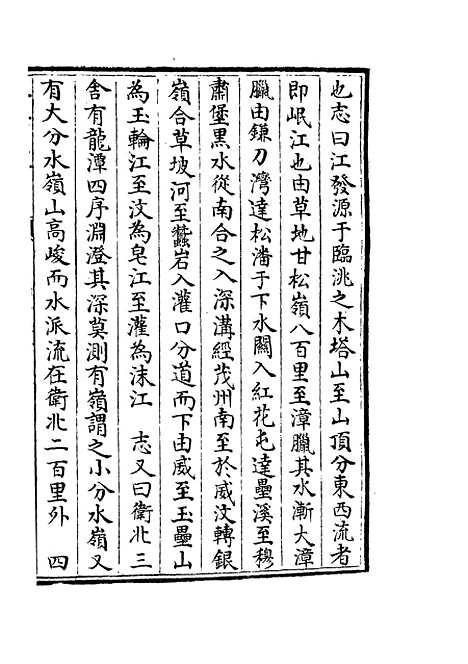 也志曰江發源于臨洮之木塔山至山頂分東西流者
即岷江也由草地甘松嶺八百里至漳臘其水漸大漳
臘由鎌刀灣達松潘于下水關入紅花屯達疊溪至穆
肅堡黑水從南合之入深溝經茂州南至於威汶轉銀
嶺合草坡河至蠶岩入灌口分道而下由威至玉壘山
為玉輪江至汶為皂江至灌為沫江　志又曰衛北三
舍有龍潭四序淵澄其深莫測有嶺謂之小分水嶺又
有大分水嶺山高峻而水派流在衛北二百里外　四